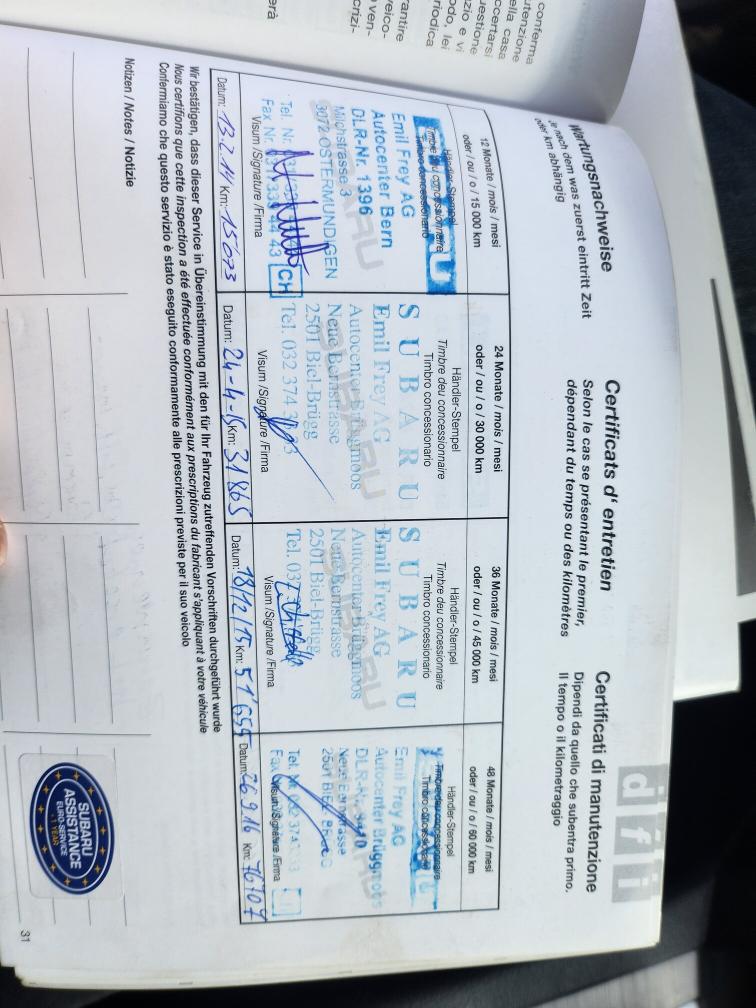 conferma
utenzione
ella casa
ccertarsi
uestione
zio e vi
odo, lei
riodica
rantire
veico-
ven-
crizi-
erà
Wartungsnachweise
Je nach dem was zuerst eintritt Zeit
oder km abhängig
Certificats d' entretien
Selon le cas se présentant le premier,
dépendant du temps ou des kilomètres
Certificati di manutenzione
Dipendi da quello che subentra primo.
Il tempo o il kilometraggio
d f i
12 Monate / mois / mesi
oder / ou / o / 15 000 km
Händler-Stempel
Timbre deu concessionnaire
Timbro concessionario
Emil Frey AG
Autocenter Bern
DLR-Nr. 1396
Milchstrasse 3
3072 OSTERMUNDIGEN
Tel. Nr.
Fax Nr. 44 43 CH
Visum /Signature /Firma
Datum: 13.2.14 Km: 15'073
24 Monate / mois / mesi
oder / ou / o / 30 000 km
Händler-Stempel
Timbre deu concessionnaire
Timbro concessionario
SUBARU
Emil Frey AG
Autocenter Brüggmoos
Neue Bernstrasse
2501 Biel-Brügg
Tel. 032 374
Visum /Signature /Firma
Datum: 24-4-15 Km: 31865
36 Monate / mois / mesi
oder / ou / o / 45 000 km
Händler-Stempel
Timbre deu concessionnaire
Timbro concessionario
SUBARU
Emil Frey AG
Autocenter Brüggmoos
Neue Bernstrasse
2501 Biel-Brügg
Tel. 032
Visum /Signature /Firma
Datum: 18/12/15 Km: 51'655
48 Monate / mois / mesi
oder / ou / o / 60 000 km
Händler-Stempel
Timbre deu concessionnaire
Timbro concessionario
Emil Frey AG
Autocenter Brüggmoos
DLR-Nr.
Neue Bernstrasse
2501 Biel-Brügg
Tel. Nr. 032 374
Fax
Visum /Signature /Firma
Datum: 26.9.16 Km: 76707
Wir bestätigen, dass dieser Service in Übereinstimmung mit den für Ihr Fahrzeug zutreffenden Vorschriften durchgeführt wurde
Nous certifions que cette inspection a été effectuée conformément aux prescriptions du fabricant s'appliquant à votre véhicule
Confermiamo che questo servizio è stato eseguito conformamente alle prescrizioni previste per il suo veicolo
Notizen / Notes / Notizie
SUBARU
ASSISTANCE
EURO-SERVICE
+1 YEAR
31